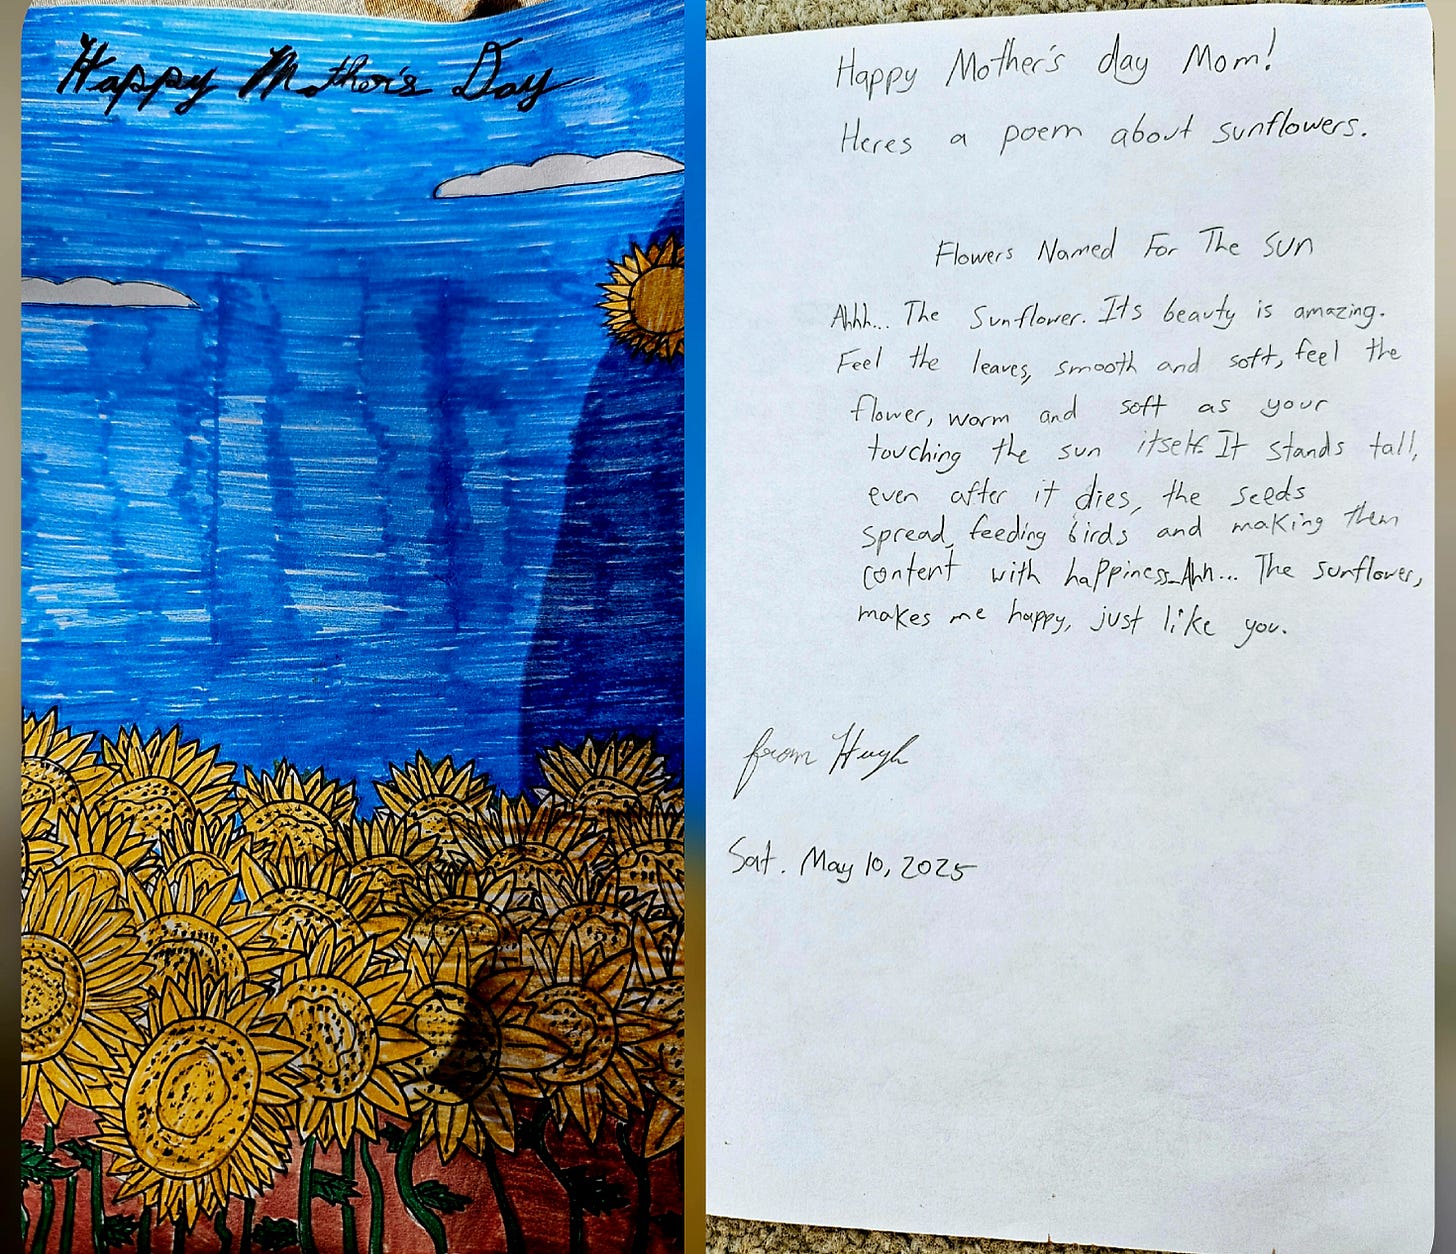 Happy Mother's Day
Happy Mother's day Mom!
Heres a poem about sunflowers.
Flowers Named For The Sun
Ahhh... The Sunflower. Its beauty is amazing.
Feel the leaves, smooth and soft, feel the
flower, warm and soft as your
touching the sun itself. It stands tall,
even after it dies, the seeds
spread, feeding birds and making them
content with happiness. Ahh... The sunflower,
makes me happy, just like you.
from Hugh
Sat. May 10, 2025